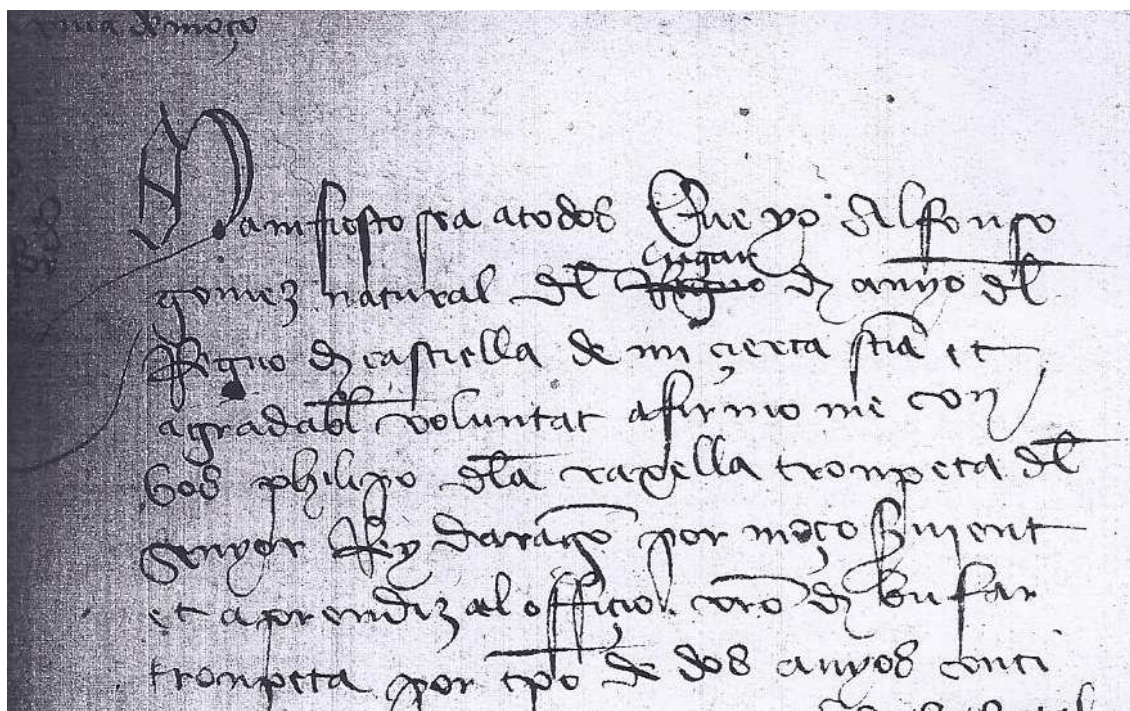 firma de moço
Manifiesto sea a todos Que yo Alfonso
lugar
gomez natural dl Regno de anyo dl
Regno de castiella de mi çierta scia et
agradabl voluntat afirmo me con
vos philipo dla capella tronpeta dl
senyor Rey daragon por moço siruient
et aprendiz al offiçio vro de bufar
tronpeta por tpo de dos anyos conti